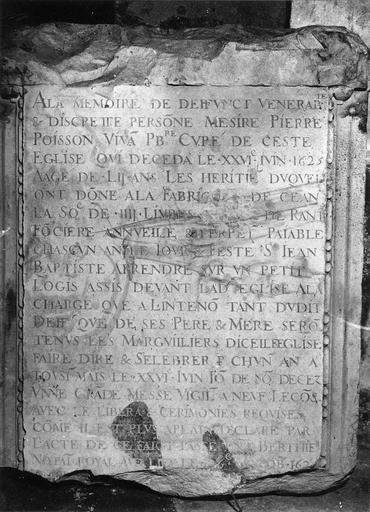 A LA MEMOIRE DE DEFFVNCT VENERABLE
& DISCRETTE PERSONE MESSIRE PIERRE
POISSON VIVĀT PBRE CVRE DE CESTE
EGLISE QVI DECEDA LE XXVIE IVIN 1625
AAGE DE LIJ ANS LES HERITIERS DVQVEL
ONT DÔNE A LA FABRIQUE DE CEAN
LA SOE DE IIIJ LIVRES DE RANTE
FÔCIERE ANNVELLE & PERPET PAIABLE
CHASCVN AN LE IOVR & FESTE ST IEAN
BAPTISTE A PRENDRE SVR VN PETIT
LOGIS ASSIS DEVANT LAD EGLISE A LA
CHARGE QVE A LINTENÔ TANT DVDIT
DEFF QVE DE SES PERE & MERE SERÔ
TENVS LES MARGVILLIERS DICELLE EGLISE
FAIRE DIRE & SELEBRER P CHVN AN A
TOVSIMAIS LE XXVIE IVIN IOR DE
VNNE GRĀDE MESSE VIGIL A NEVF LECOS
AVEC LE LIBERA & CERIMONIES REQVISES
CÔME IL EST PLVS A PLAIN DECLARE PAR
L'ACTE DE CE FAICT PASSE
NOTAI ROYAL